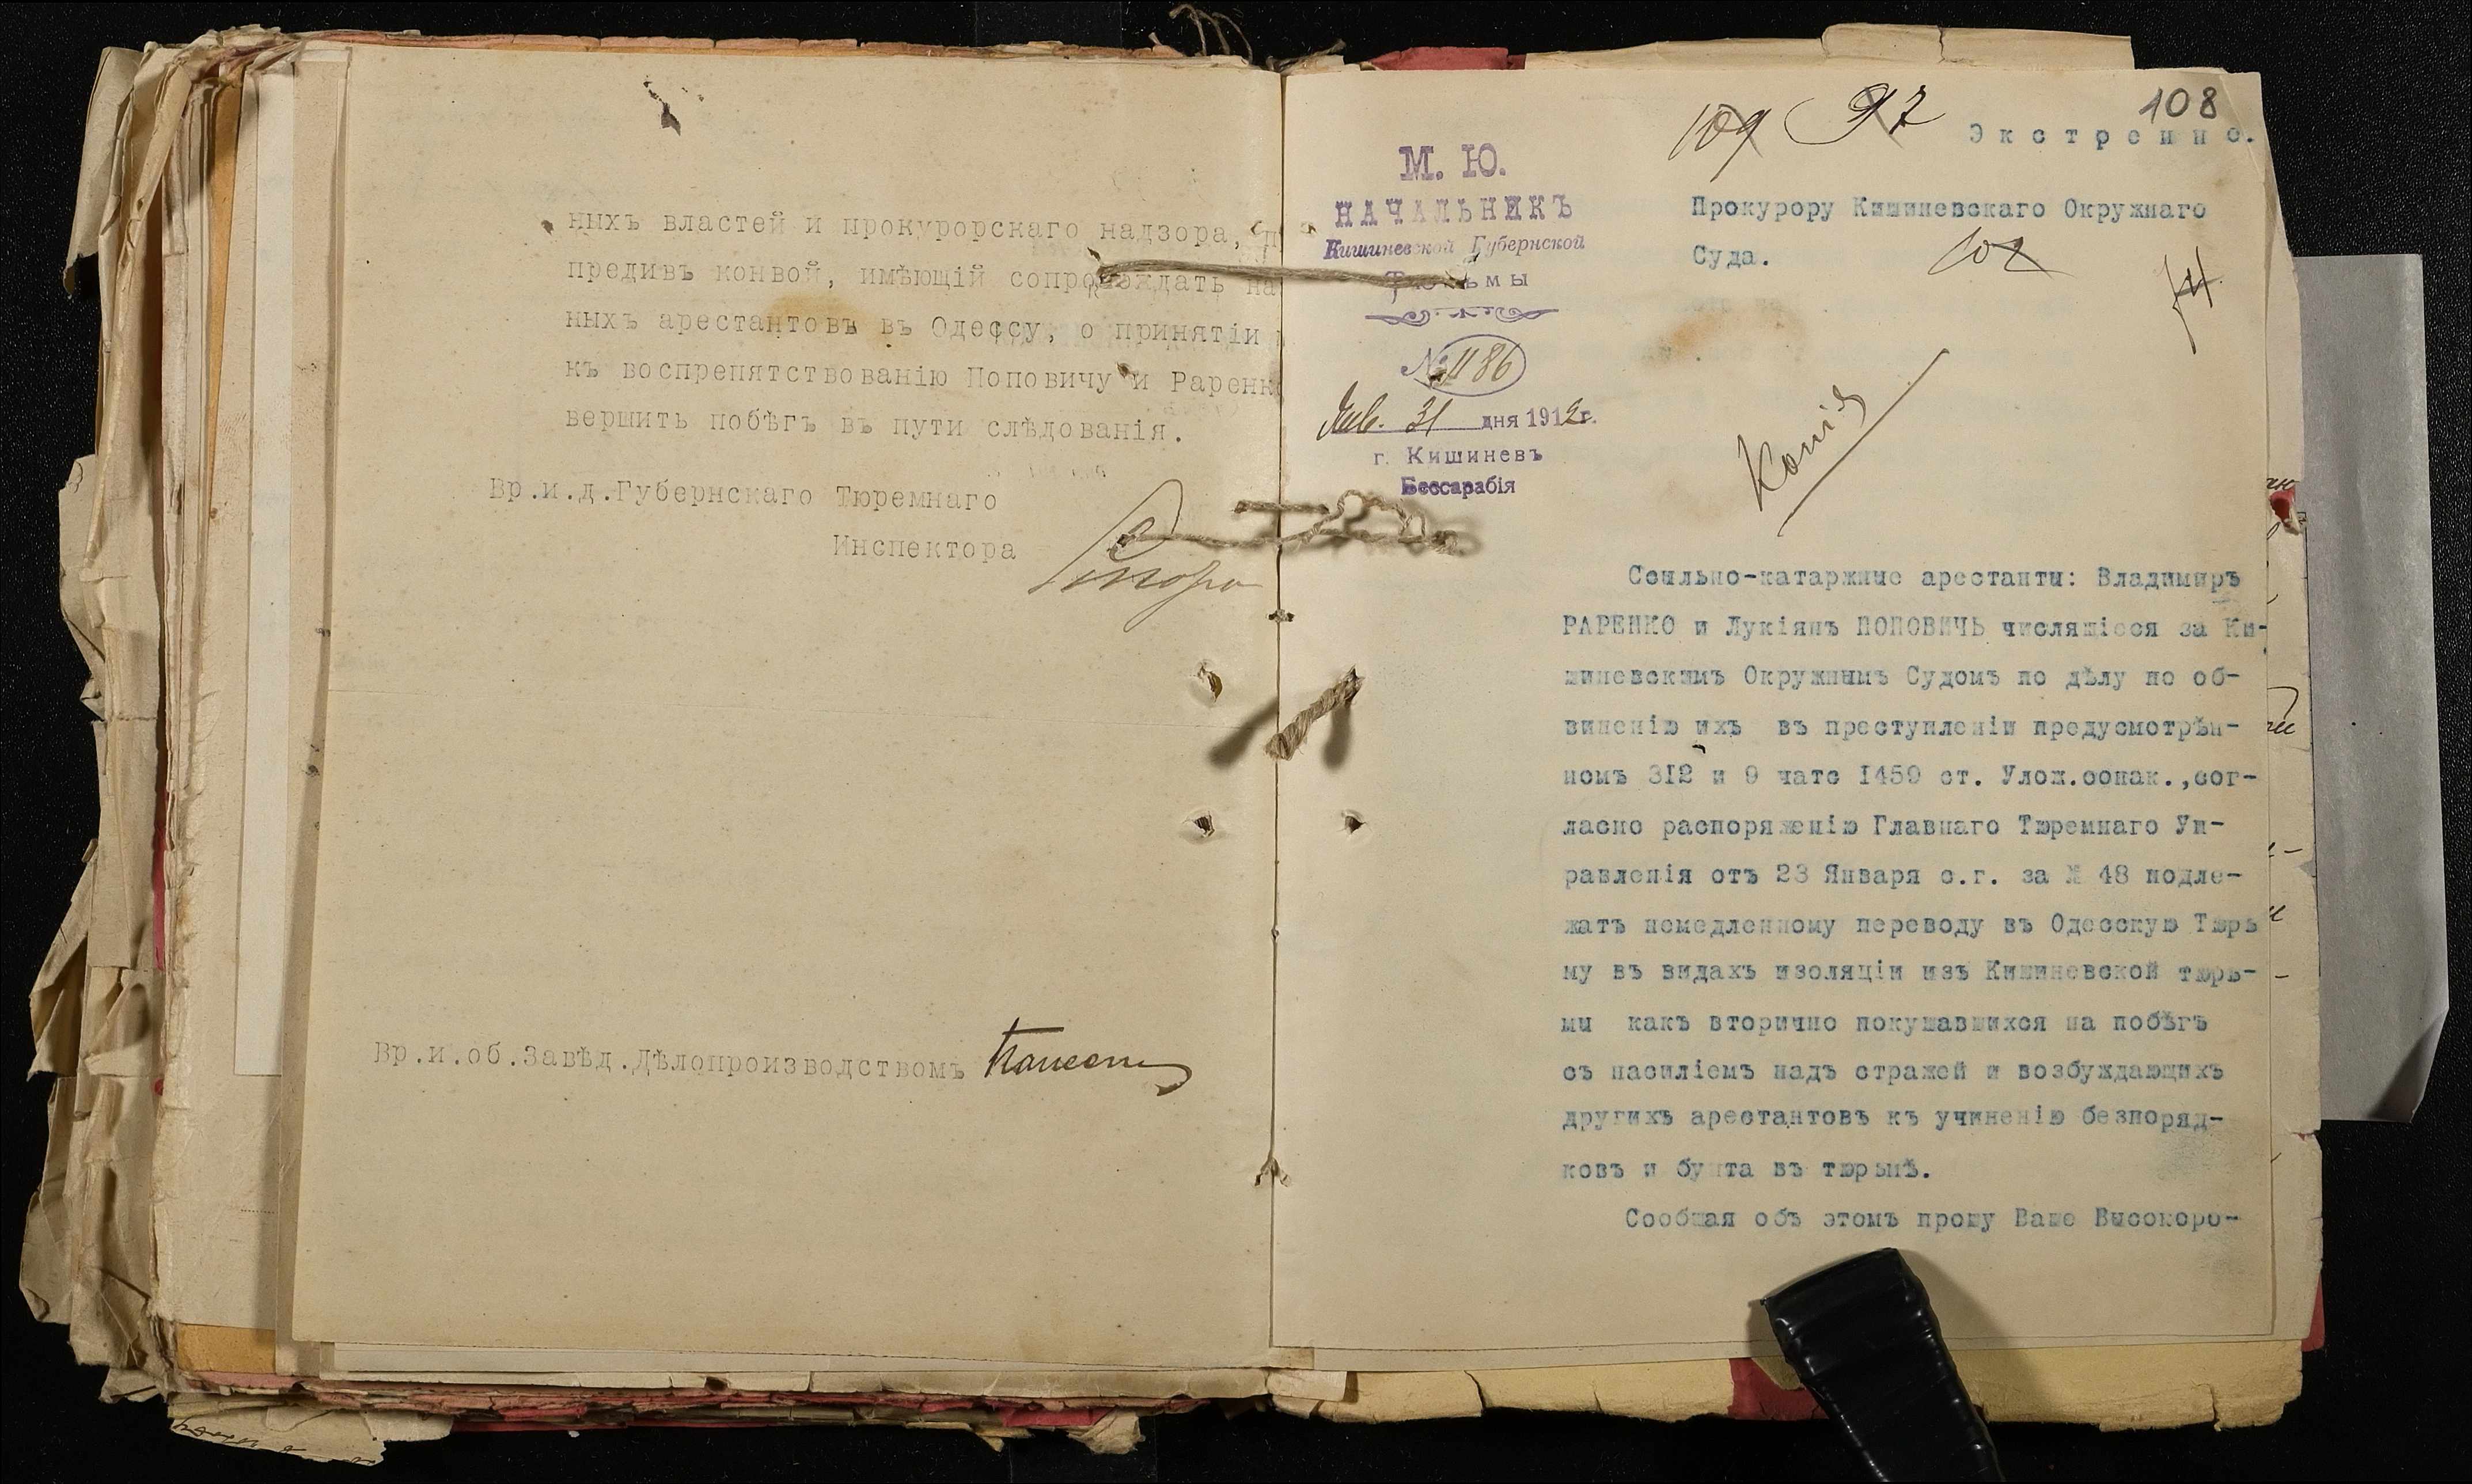 ныхъ властей и прокурорскаго надзора,
предивъ конвой, имѣющій сопровождать на
ныхъ арестантовъ въ Одессу, о принятіи
къ воспрепятствованію Поповичу и Раренко
вершить побѣгъ въ пути слѣдованія.
Вр.и.д.Губернскаго Тюремнаго
Инспектора
Вр.и.об.Завѣд.Дѣлопроизводствомъ
108
109 97
Экстренно.
М. Ю.
НАЧАЛЬНИКЪ
Кишиневской Губернской
Тюрьмы
№ 1186
Янв. 31 дня 1912г.
г. Кишиневъ
Бессарабія
Прокурору Кишиневскаго Окружнаго
Суда.
102
Копія
Ссыльно-катаржные арестанты: Владимиръ
РАРЕНКО и Лукіянъ ПОПОВИЧЬ числящіеся за Ки-
шиневскимъ Окружнымъ Судомъ по дѣлу по об-
виненію ихъ въ преступленіи предусмотрѣн-
номъ 312 и 9 чатс 1459 ст. Улож.сонак.,сог-
ласно распоряженію Главнаго Тюремнаго Уп-
равленія отъ 23 Января с.г. за № 48 подле-
жатъ немедленному переводу въ Одесскую Тюрь
му въ видахъ изоляціи изъ Кишиневской тюрь-
мы какъ вторично покушавшихся на побѣгъ
съ насиліемъ надъ стражей и возбуждающихъ
другихъ арестантовъ къ учиненію безпоряд-
ковъ и бунта въ тюрьмѣ.
Сообщая объ этомъ прошу Ваше Высокоро-